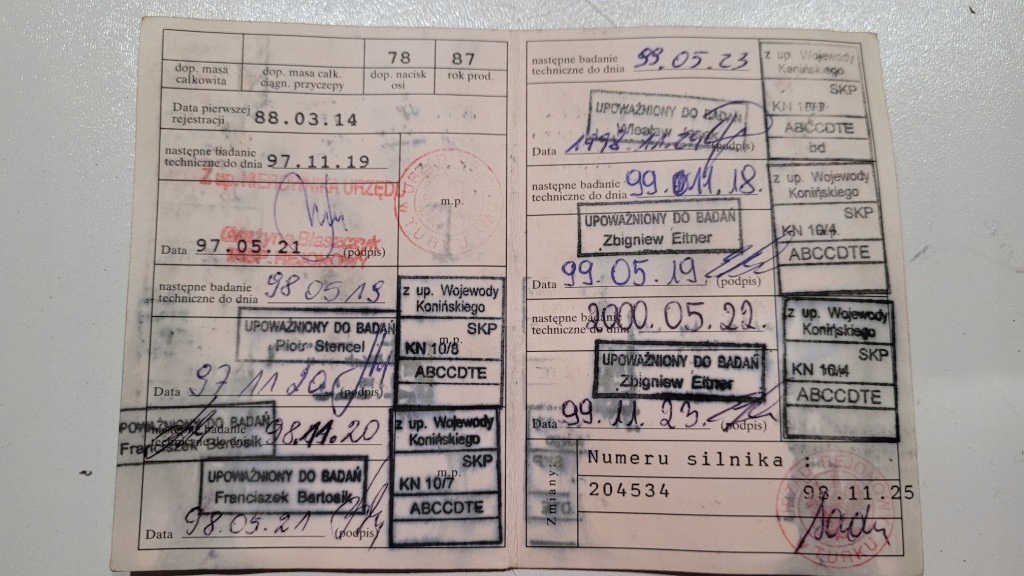 78 87
dop. masa całkowita
dop. masa całk. ciągn. przyczepy
dop. nacisk osi
rok prod.
Data pierwszej rejestracji 88.03.14
następne badanie techniczne do dnia 97.11.19
Z up. KIEROWNIKA URZĘDU
m.p.
Data 97.05.21 (podpis)
następne badanie techniczne do dnia 98 05 19
z up. Wojewody
Konińskiego
UPOWAŻNIONY DO BADAŃ
Piotr Stencel
SKP
m.p.
KN 10/8
ABCCDTE
Data 97 11 20 (podpis)
następne badanie techniczne do dnia 98.11.20
UPOWAŻNIONY DO BADAŃ
Franciszek Bartosik
z up. Wojewody
Konińskiego
UPOWAŻNIONY DO BADAŃ
Franciszek Bartosik
SKP
m.p.
KN 10/7
ABCCDTE
Data 98.05.21 (podpis)
następne badanie techniczne do dnia 99.05.23
z up. Wojewody
Konińskiego
SKP
UPOWAŻNIONY DO BADAŃ
Wiesław
KN
m.p.
ABCCDTE
bd
Data (podpis)
następne badanie techniczne do dnia 99.11.18.
z up. Wojewody
Konińskiego
UPOWAŻNIONY DO BADAŃ
Zbigniew Eitner
SKP
KN 10/4
ABCCDTE
Data 99.05.19 (podpis)
następne badanie techniczne do dnia 2000.05.22.
z up. Wojewody
Konińskiego
UPOWAŻNIONY DO BADAŃ
Zbigniew Eitner
SKP
KN 10/4
ABCCDTE
Data 99.11.23. (podpis)
Zmiany:
Numeru silnika :
204534 98.11.25